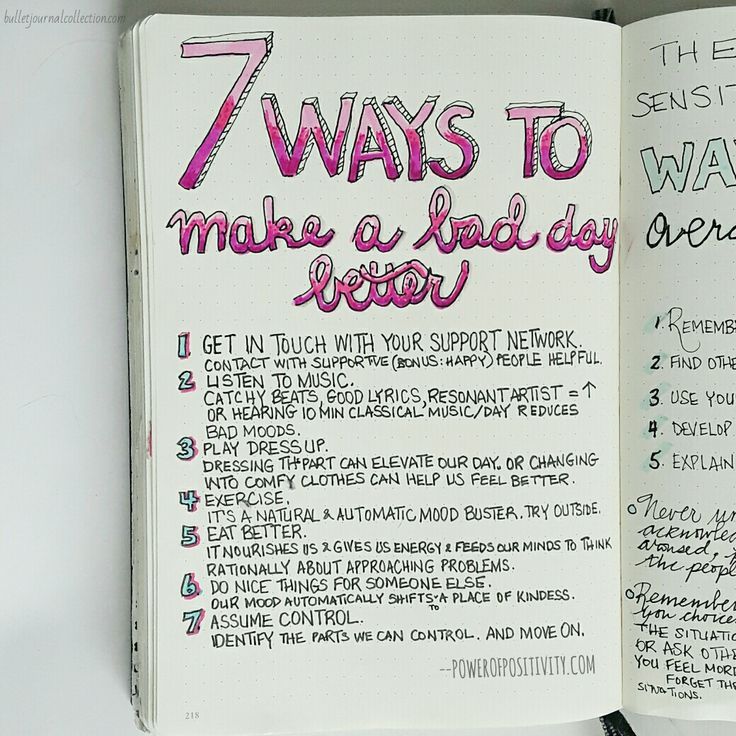 bulletjournalcollection.com
7 WAYS TO
make a bad day
better
1 GET IN TOUCH WITH YOUR SUPPORT NETWORK.
CONTACT WITH SUPPORTIVE (BONUS: HAPPY) PEOPLE HELPFUL.
2 LISTEN TO MUSIC.
CATCHY BEATS, GOOD LYRICS, RESONANT ARTIST = ↑
OR HEARING 10 MIN CLASSICAL MUSIC/DAY REDUCES
BAD MOODS.
3 PLAY DRESS UP.
DRESSING TH PART CAN ELEVATE OUR DAY. OR CHANGING
INTO COMFY CLOTHES CAN HELP US FEEL BETTER.
4 EXERCISE.
IT'S A NATURAL & AUTOMATIC MOOD BUSTER. TRY OUTSIDE.
5 EAT BETTER.
IT NOURISHES US & GIVES US ENERGY & FEEDS OUR MINDS TO THINK
RATIONALLY ABOUT APPROACHING PROBLEMS.
6. DO NICE THINGS FOR SOMEONE ELSE.
OUR MOOD AUTOMATICALLY SHIFTS TO A PLACE OF KINDESS.
7. ASSUME CONTROL.
IDENTIFY THE PARTS WE CAN CONTROL. AND MOVE ON.
--POWEROFPOSITIVITY.COM
218
THE
SENSIT
WA
over
1. REMEMB
2. FIND OTHE
3. USE YOU
4. DEVELOP
5. EXPLAIN
Never un
acknowled
aroused,
the peopl
Remember
you choos
THE SITUATIO
OR ASK OTHE
YOU FEEL MOR
FORGET THE
SITUATIONS.